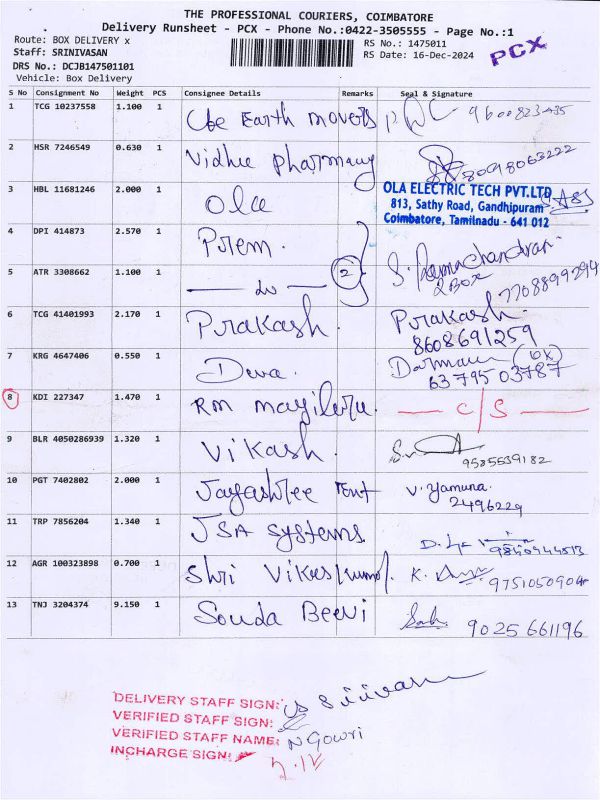 THE PROFESSIONAL COURIERS, COIMBATORE
Delivery Runsheet - PCX - Phone No.:0422-3505555 - Page No.:1
Route: BOX DELIVERY x
RS No.: 1475011
Staff: SRINIVASAN
RS Date: 16-Dec-2024
PCX
DRS No.: DCJB147501101
Vehicle: Box Delivery
S No Consignment No Weight PCS Consignee Details Remarks Seal & Signature
1 TCG 10237558 1.100 1 Cbe Earth movers
2 HSR 7246549 0.630 1 Vidhu pharmacy 8098063222
3 HBL 11681246 2.000 1 Ola
OLA ELECTRIC TECH PVT.LTD
813, Sathy Road, Gandhipuram
Coimbatore, Tamilnadu - 641 012
4 DPI 414873 2.570 1 Prem. S. Ramachandran
5 ATR 3308662 1.100 1 2 2 Box 7708899294
6 TCG 41401993 2.170 1 Prakash. Prakash.
8608691259
7 KRG 4647406 0.550 1 Deva.
63795 03787
8 KDI 227347 1.470 1 Rm C/S
9 BLR 4050286939 1.320 1 Vikash.
9585539182
10 PGT 7402802 2.000 1 Jayashree Tent V. Yamuna.
2496229
11 TRP 7856204 1.340 1 JSA Systems
12 AGR 100323898 0.700 1 Shri K. 9751050904
13 TNJ 3204374 9.150 1 Souda Beevi 9025 661196
DELIVERY STAFF SIGN:
VERIFIED STAFF SIGN:
VERIFIED STAFF NAME: N Gowri
INCHARGE SIGN: